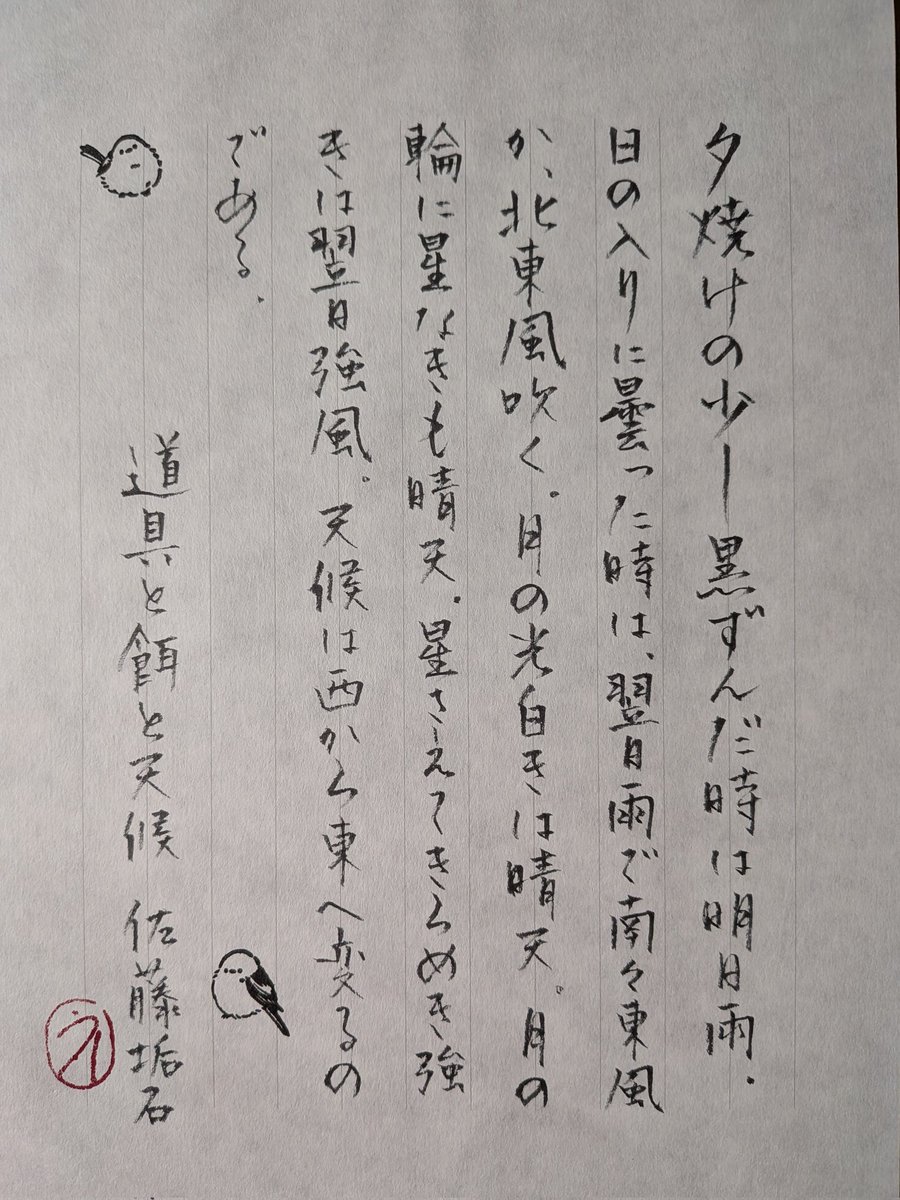 夕焼けの少し黒ずんだ時は明日雨.
日の入りに曇った時は、翌日雨で南々東風
か、北東風吹く。月の光白きは晴天。月の
輪に星なきも晴天.星さえてきらめき強
きは翌日強風。天候は西から東へ変るの
である.
道具と餌と天候 佐藤垢石